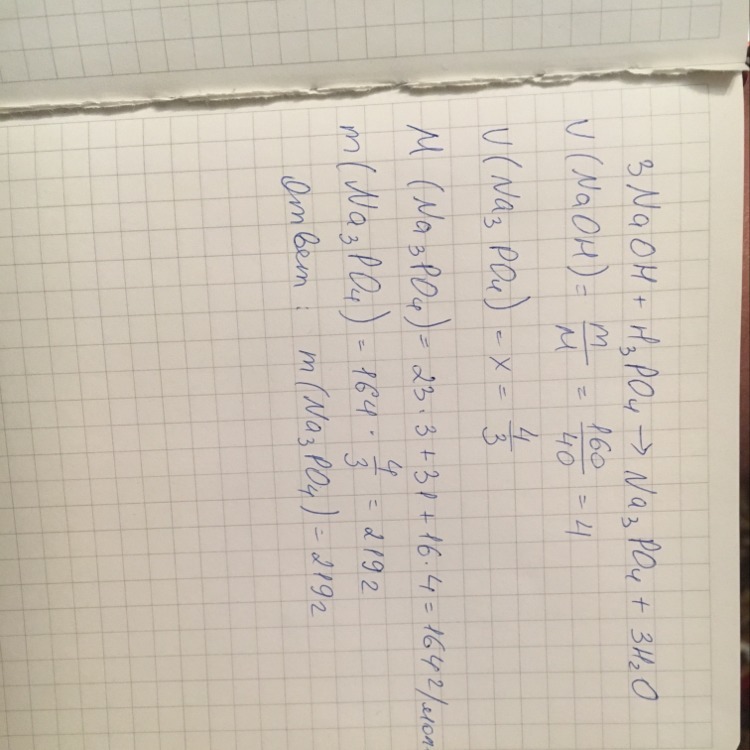 3NaOH + H₃PO₄ → Na₃PO₄ + 3H₂O
ν(NaOH) = m/M = 160/40 = 4
ν(Na₃PO₄) = x = 4/3
M(Na₃PO₄) = 23·3+31+16·4 = 164г/мол
m(Na₃PO₄) = 164 · 4/3 = 219г
Ответ: m(Na₃PO₄) = 219г